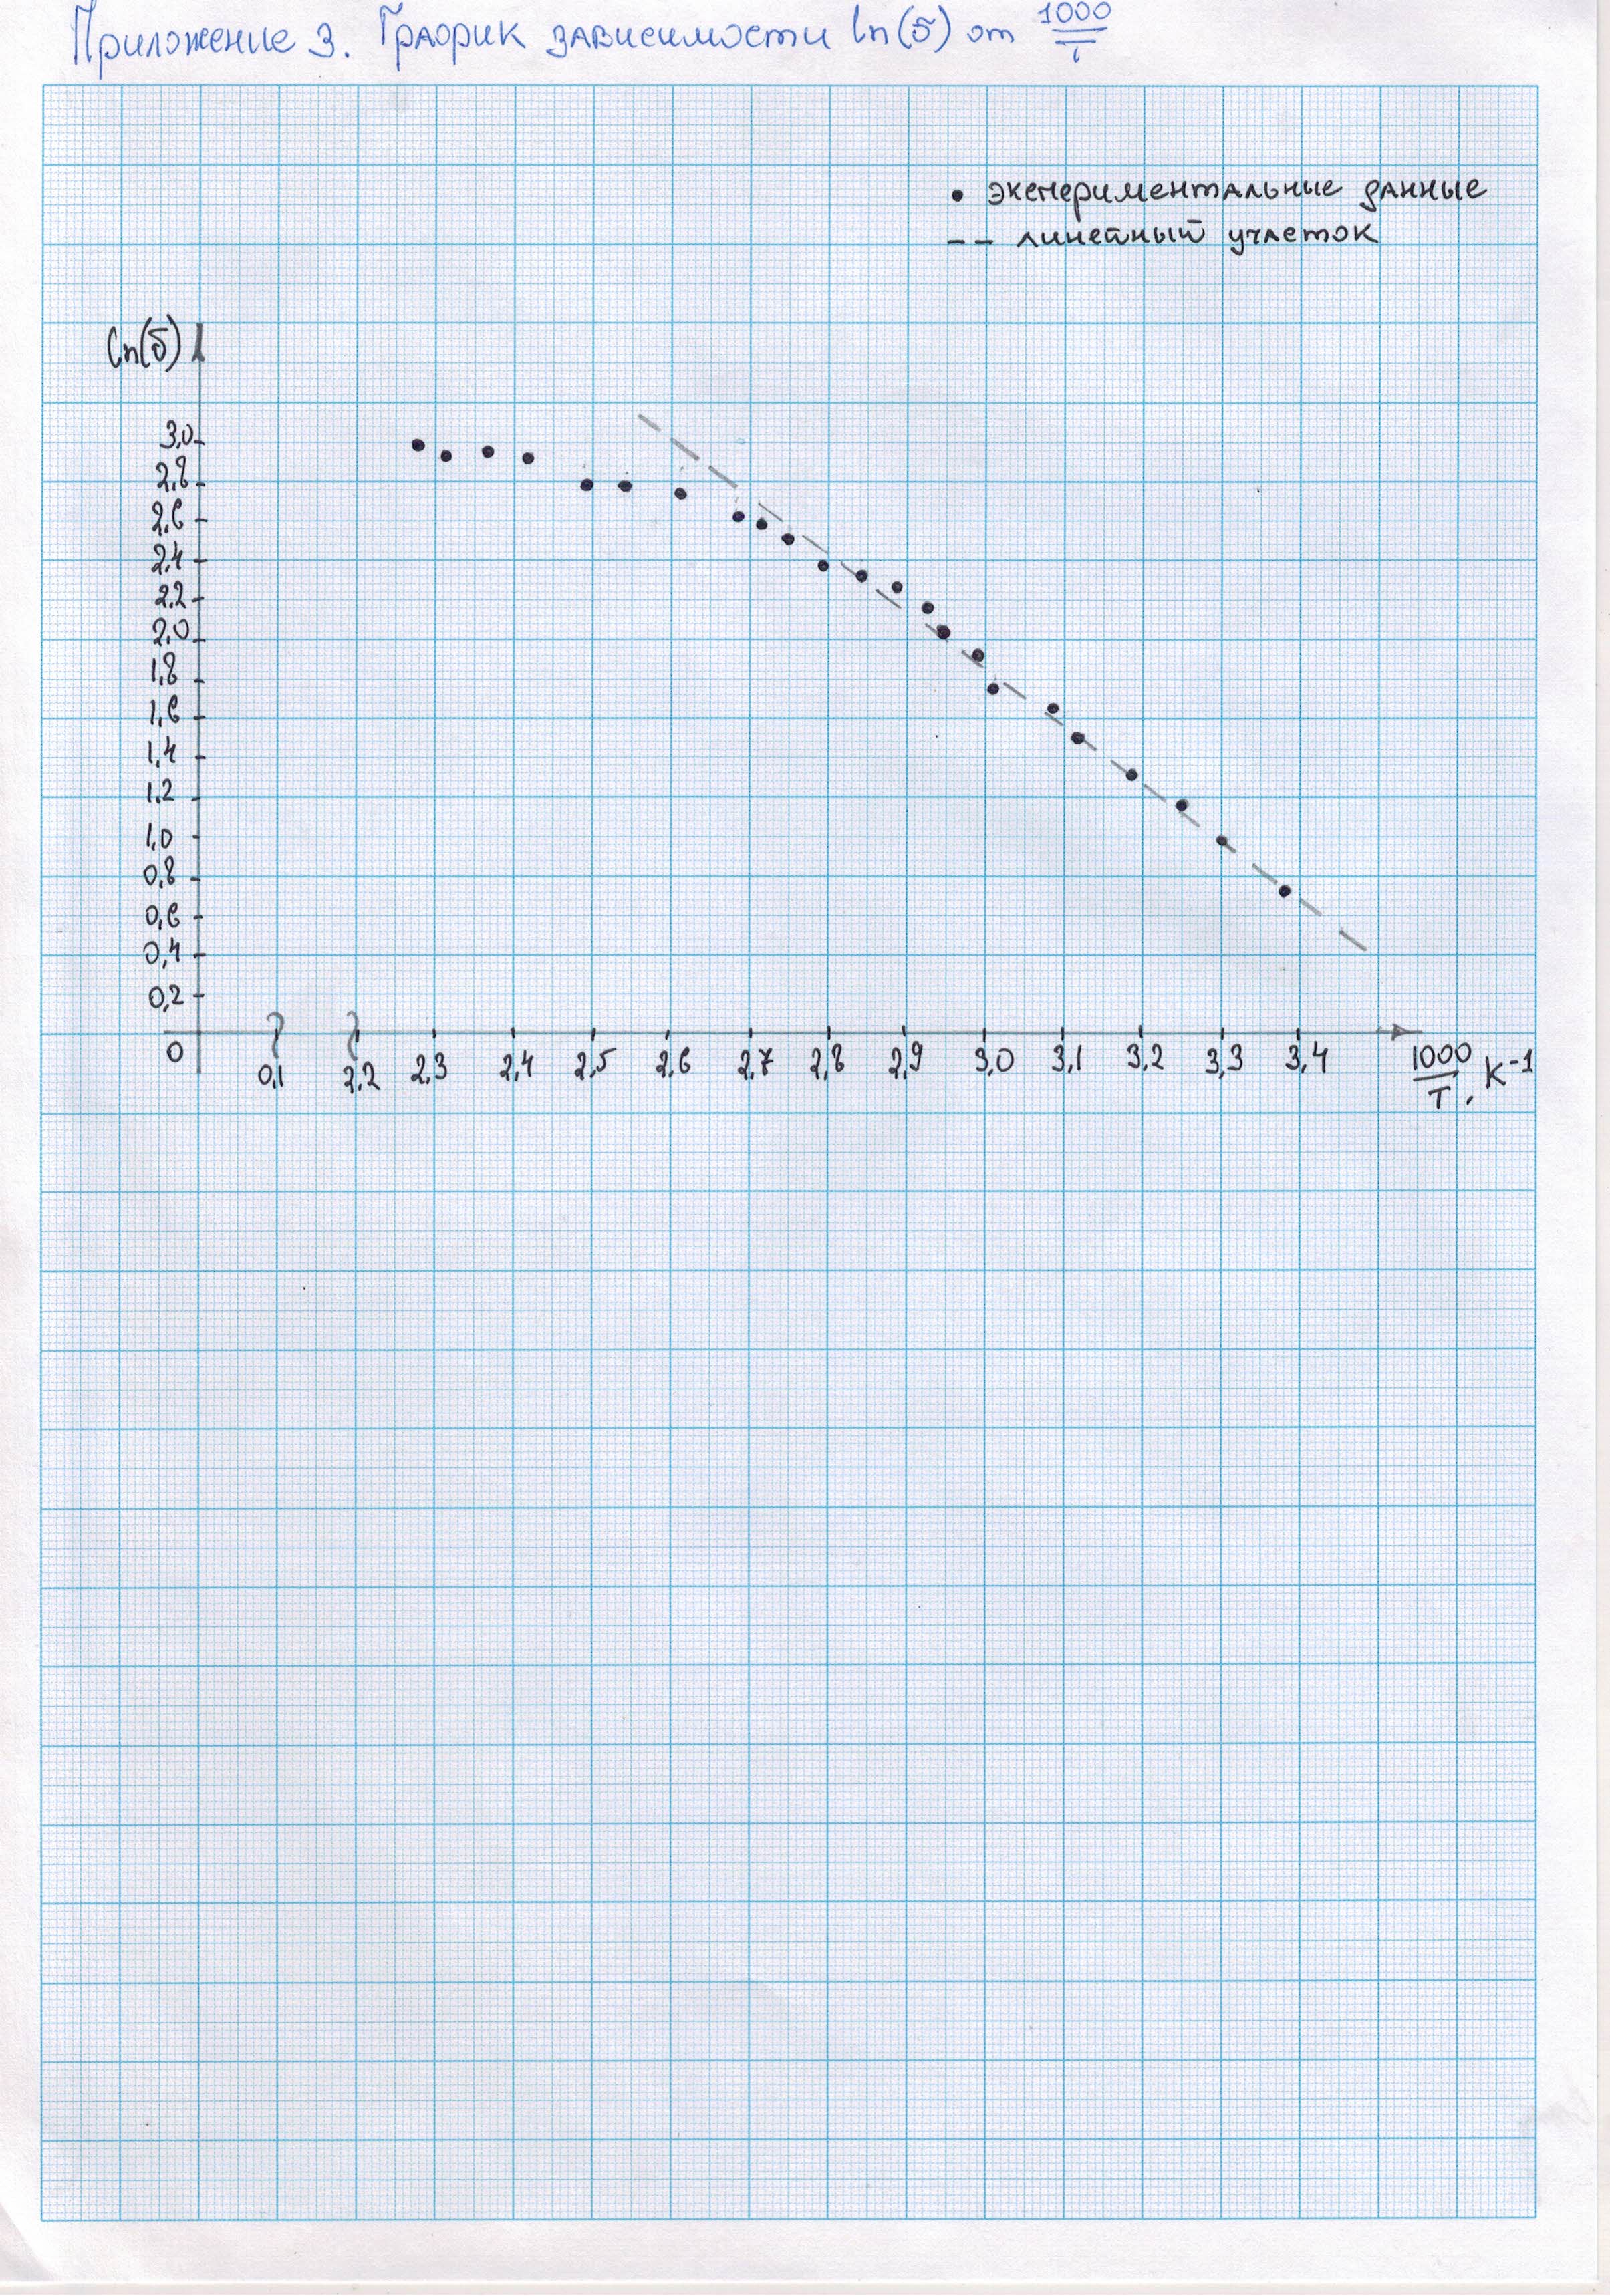 Приложение 3. График зависимости ln(σ) от 1000/T
• экспериментальные данные
-- линейный участок
ln(σ)
3,0
2,8
2,6
2,4
2,2
2,0
1,8
1,6
1,4
1,2
1,0
0,8
0,6
0,4
0,2
0 0,1 2,2 2,3 2,4 2,5 2,6 2,7 2,8 2,9 3,0 3,1 3,2 3,3 3,4 1000/T, K⁻¹